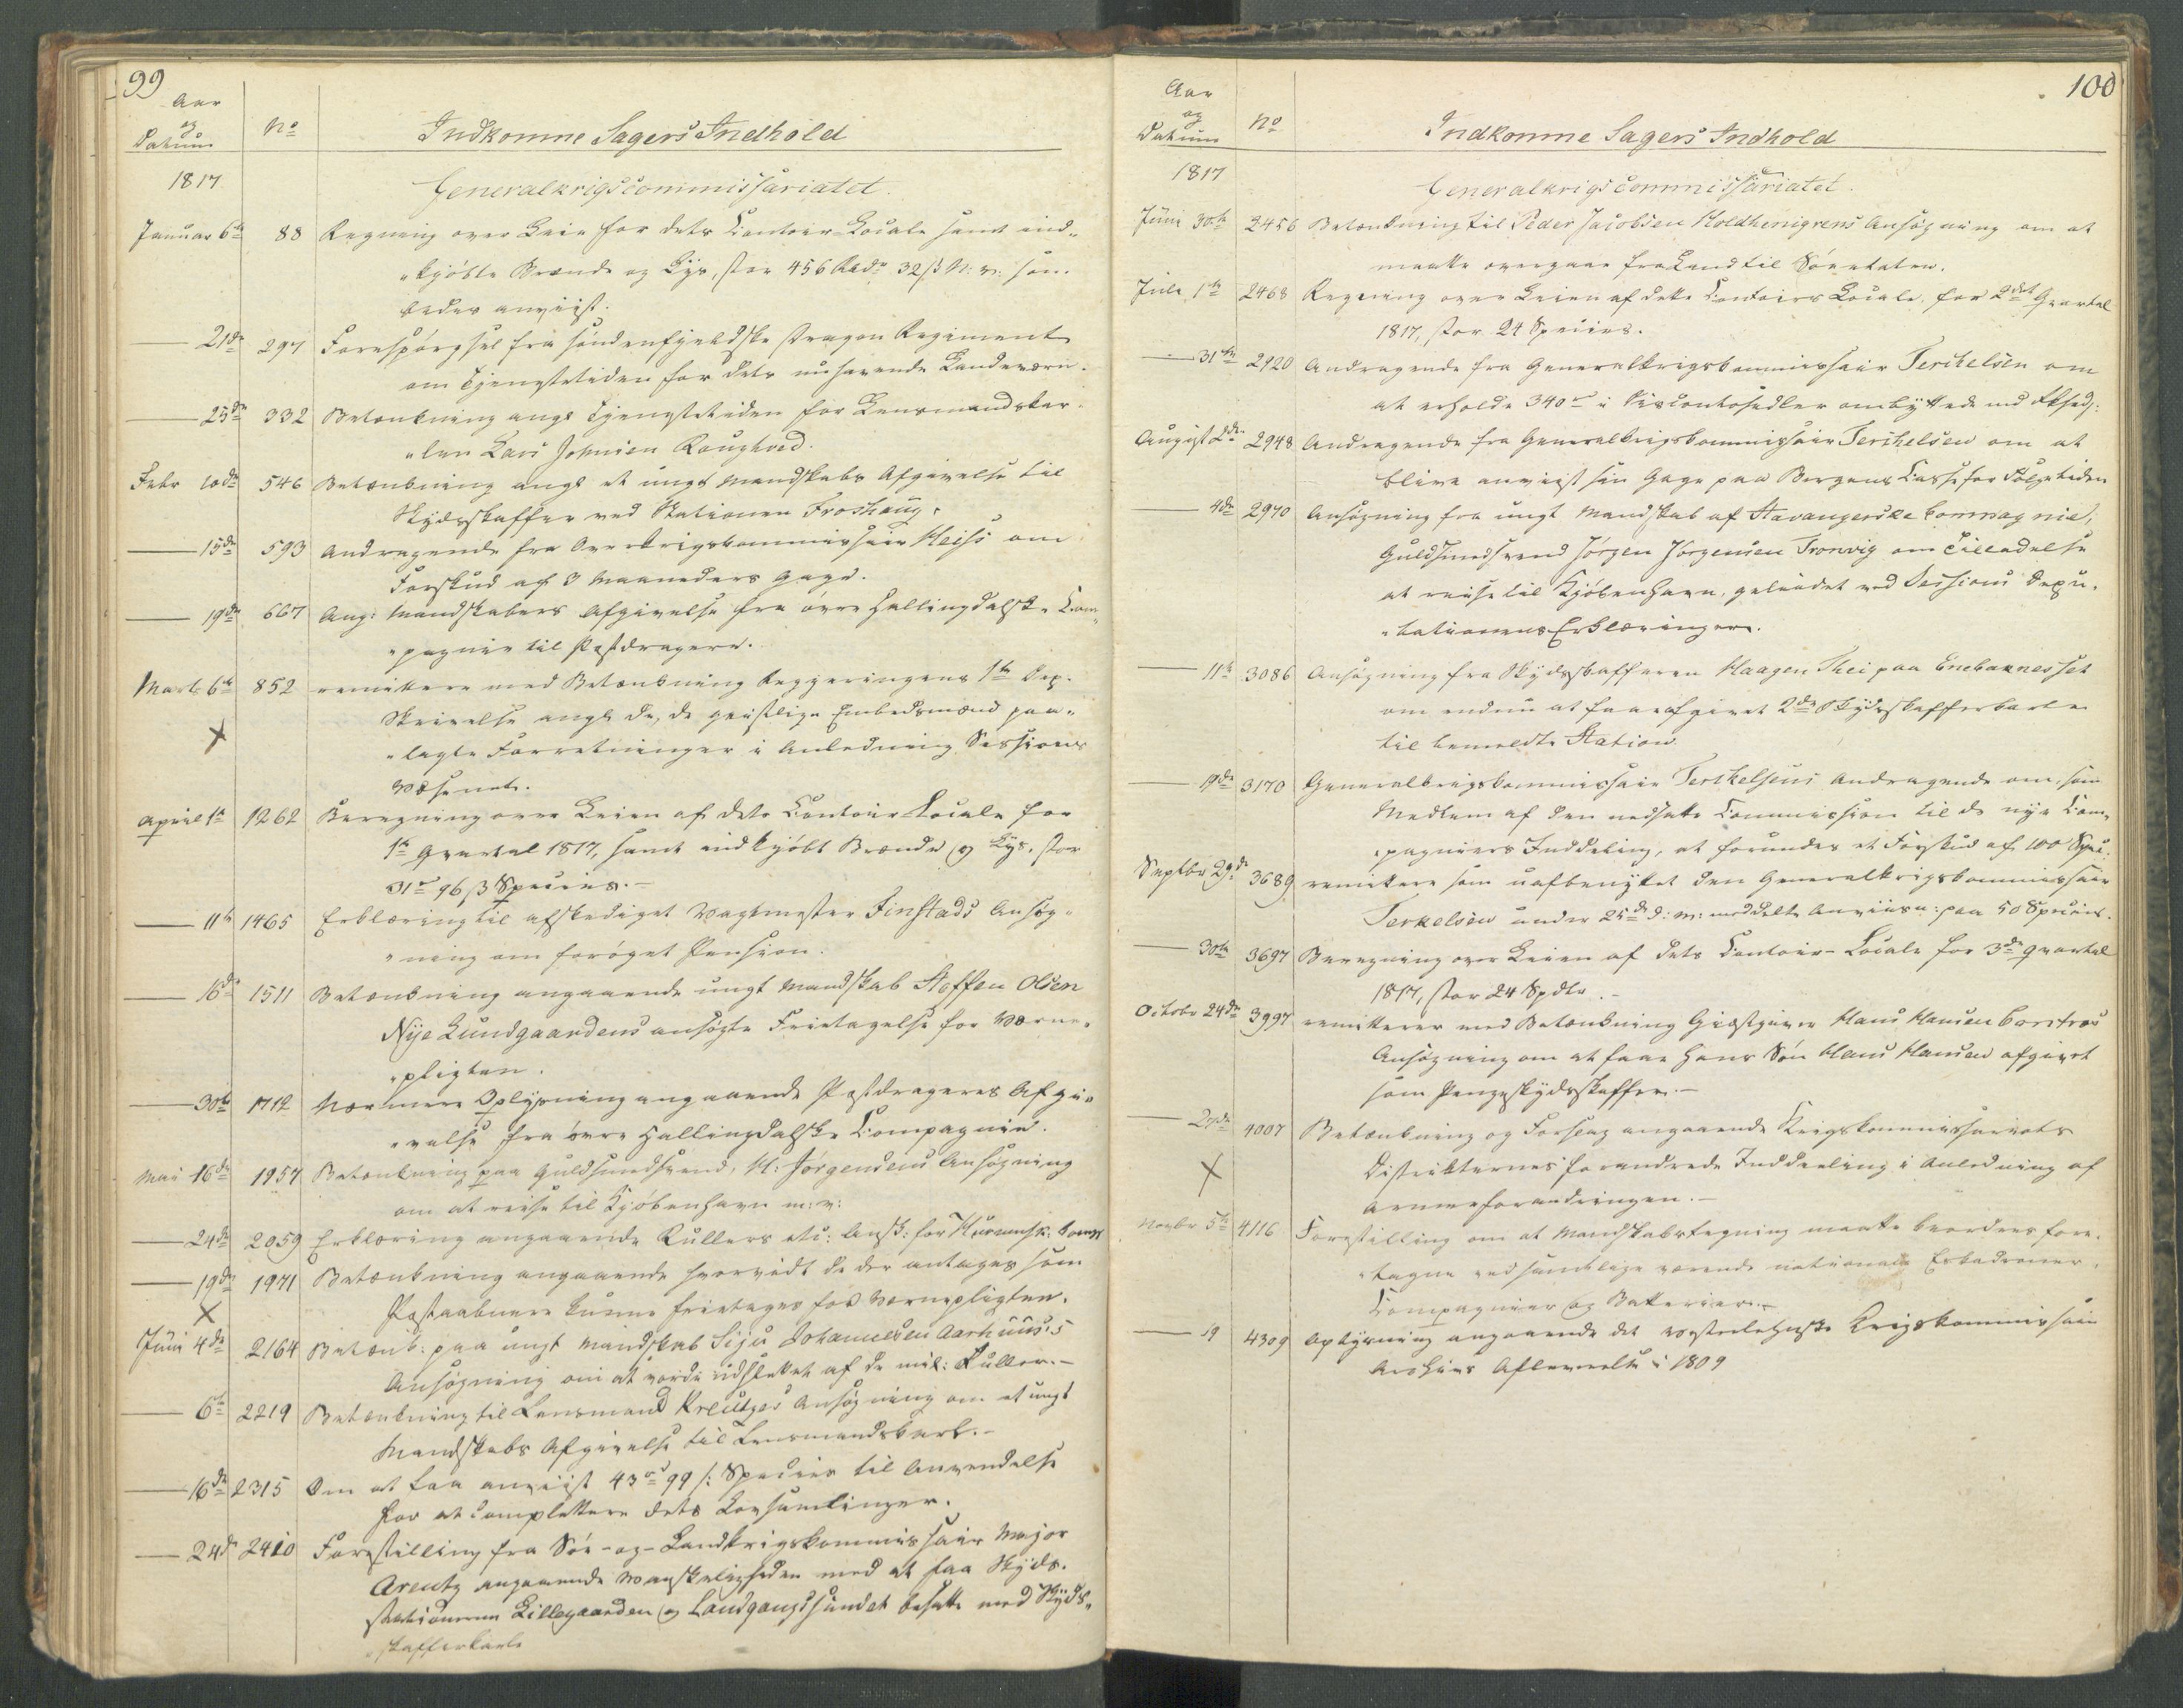 99
Aar
og
Datum
No
Indkomne Sagers Indhold
1817
Generalkrigscommissariatet.
Januar 6te 88 Regning over Leie for dets Contoir-Locale samt ind-
"kjöbte Brænde og Lys, stor 456 Rbdr 32 ß N: v: som
bedes anviist.
21de 297 Forespörgsel fra söndenfjeldske Dragon Regiment
om Tjenestetiden for dets nuhavende Landeværn.
25de 332 Betænkning angl Tjenestetiden for Lensmandskar-
"len Lars Johnsen Roughved.
Febr 10de 546 Betænkning angl et ungt Mandskabs Afgivelse til
Skydsskaffer ved Stationen Froshaug.
15de 593 Andragende fra Overkrigskommissair Heiss om
Forskud af 3 Maaneders Gage.
19de 667 Ang: Mandskabers Afgivelse fra övre Hallingdalske Com-
"pagnie til Postdragere.
Marts 6te 852 remittere med Betænkning Regjeringens 1te Dep.
Skrivelse angl de, de geistlige Embedsmænd paa-
"lagte Forretninger i Anledning Sessions
Væsenet.
April 1te 1262 Beregning over Leien af dets Contoir-Locale for
1te Qvartal 1817, samt indkjöbt Brænde og Lys, stor
31 96 ß Species.-
11te 1465 Erklæring til afskediget Vagtmester Finstads Ansög-
"ning om foröget Pension.
16de 1511 Betænkning angaaende ungt Mandskab Steffen Olsen
Nye Lundgaardens ansögte Fritagelse for Værne-
"pligten.
30te 1712 Nærmere Oplysning angaaende Postdrageres Afgi-
"velse fra övre Hallingdalske Compagnie.
Mai 16de 1957 Betænkning paa Guldsmedsvend, H: Jörgensens Ansögning
om at reise til Kjöbenhavn m: v:
24de 2059 Erklæring angaaende Rullers etc: Ansk: for Komp
19de 1971 Betænkning angaaende hvorvidt de der antages som
Postaabnere kunne fritages for Værnepligten.
Juni 4de 2164 Betænk: paa ungt Mandskab Siju Johannesen Aarhuus's
Ansögning om at vorde udslettet af de mil: Ruller.-
6te 2219 Betænkning til Lensmand Kreutzes Ansögning om et ungt
Mandskabs Afgivelse til Lensmandskarl.-
16de 2315 Om at faa anviist 43 99 ß: Species til Anvendelse
for at complettere dets Lovsamlinger.
24de 2410 Forestilling fra Söe-og-Landkrigskommissair Major
Arentz angaaende Vanskeligheden med at faa Skyds-
stationerne Lillegaarden og Landgangssundet besatte med Skyds-
"skafferkarle
100
Aar
og
Datum
No
Indkomne Sagers Indhold
1817
Generalkrigscommissariatet.
Juni 30te 2456 Betænkning til Peder Jacobsen Holdhenigrens Ansögning om at
maatte overgaae fra Land til Söeetaten.
Julii 1te 2468 Regning over Leien af dette Contoirs Locale for 2det Qvartal
1817, stor 24 Species.
31te 2920 Andragende fra Generalkrigskommissair Terchelsen om
at erholde 340 i Discontosedler ombyttede med
August 2den 2948 Andragende fra Generalkrigskommissair Terchelsen om at
blive anviist sin Gage paa Bergens Casse for Fölgetiden
4de 2970 Ansögning fra ungt Mandskab af Stavangerske Compagnie,
Guldsmedsvend Jörgen Jörgensen Tronvig om Tilladelse
at reise til Kjöbenhavn, geleidet ved Sessions Depu-
"tationens Erklæringer.
11te 3086 Ansögning fra Skydsskafferen Haagen Thei paa Enebaknesset
om endnu at faae afgivet 2de Skydsskafferkarle
til bemeldte Station
19de 3170 Generalkrigskommissair Terkelsens Andragende om, som
Medlem af den nedsatte Commission til de nye Com-
"pagniers Inddeling, at forundes et Forskud af 100 Spec:
Septbr 29de 3689 remittere som uafbenyttet den Generalkrigskommissair
Terkelsen under 25de d: m: meddelte Anviisn: paa 50 Species.
30te 3697 Beregning over Leien af dets Contoir-Locale for 3de Qvartal
1817, stor 24 Spdlr.-
Octobr 24de 3997 remitterer med Betænkning Gjæstgiver Hans Hansen
Ansögning om at faae hans Sön Hans Hansen afgivet
som Skydsskaffer.-
27de 4007 Betænkning og Forslag angaaende Krigskommissariats
Distrikternes forandrede Inddeeling i Anledning af
Armeeforandringen.-
Novbr 5te 4116 Forestilling om at Mandskabstegning maatte beordres fore-
"tagne ved samtlige værende nationale Eskadroner,
Compagnier og Batterier.-
19 4309 Oplysning angaaende det vesterlehnske Krigskommissair
Archivs Afleverelse i 1809